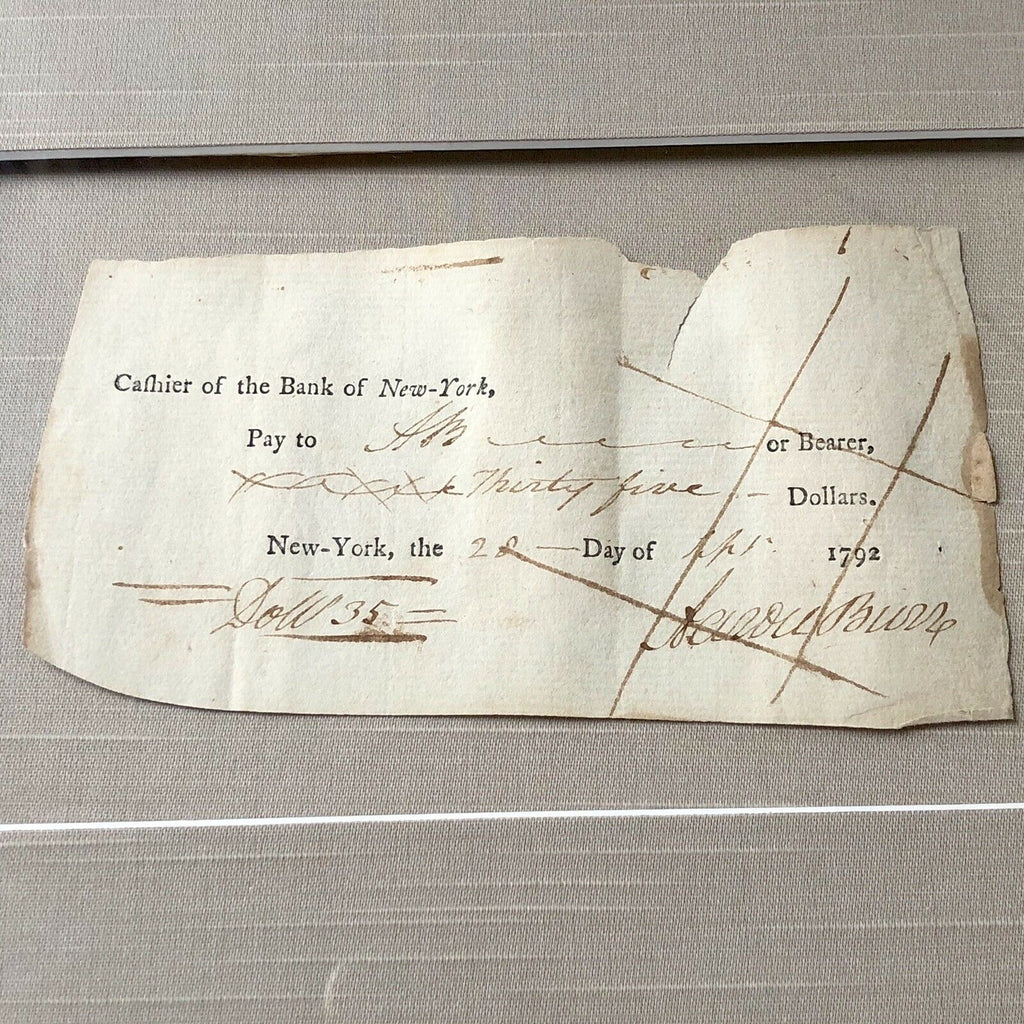 Caſhier of the Bank of New-York,
Pay to AB or Bearer,
Thirty five Dollars.
New-York, the 28 Day of Apr. 1792
Doll 35
Aaron Burr